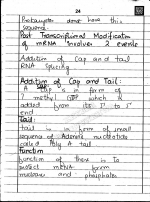 24
Prokaryotes dont have this
sequence
Post Transcriptional Modification
of mRNA involves 2 events
Addition of Cap and tail
RNA Splicing
Addition of Cap and Tail:
A cap is in form of
7 methyl GTP which is
added from 5' to 5'
end
Tail:
tail is in form of small
sequence of Adenine nucleotide
called Poly A tail
Function
function of these is to
protect mRNA from
nuclease and phosphatases